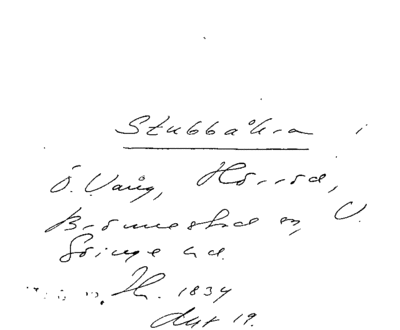 Stubbåkra i
Ö. Vång, Hörröd,
Brönnestad sn, V.
Göinge hd.
1834
akt 19.